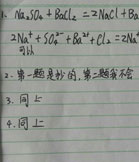 1. Na₂SO₄ + BaCl₂ = 2NaCl + Ba
2Na⁺ + SO₄²⁻ + Ba²⁺ + Cl₂ = 2Na⁺
可以
2. 第一题是抄的,第二题我不会
3. 同上
4. 同上